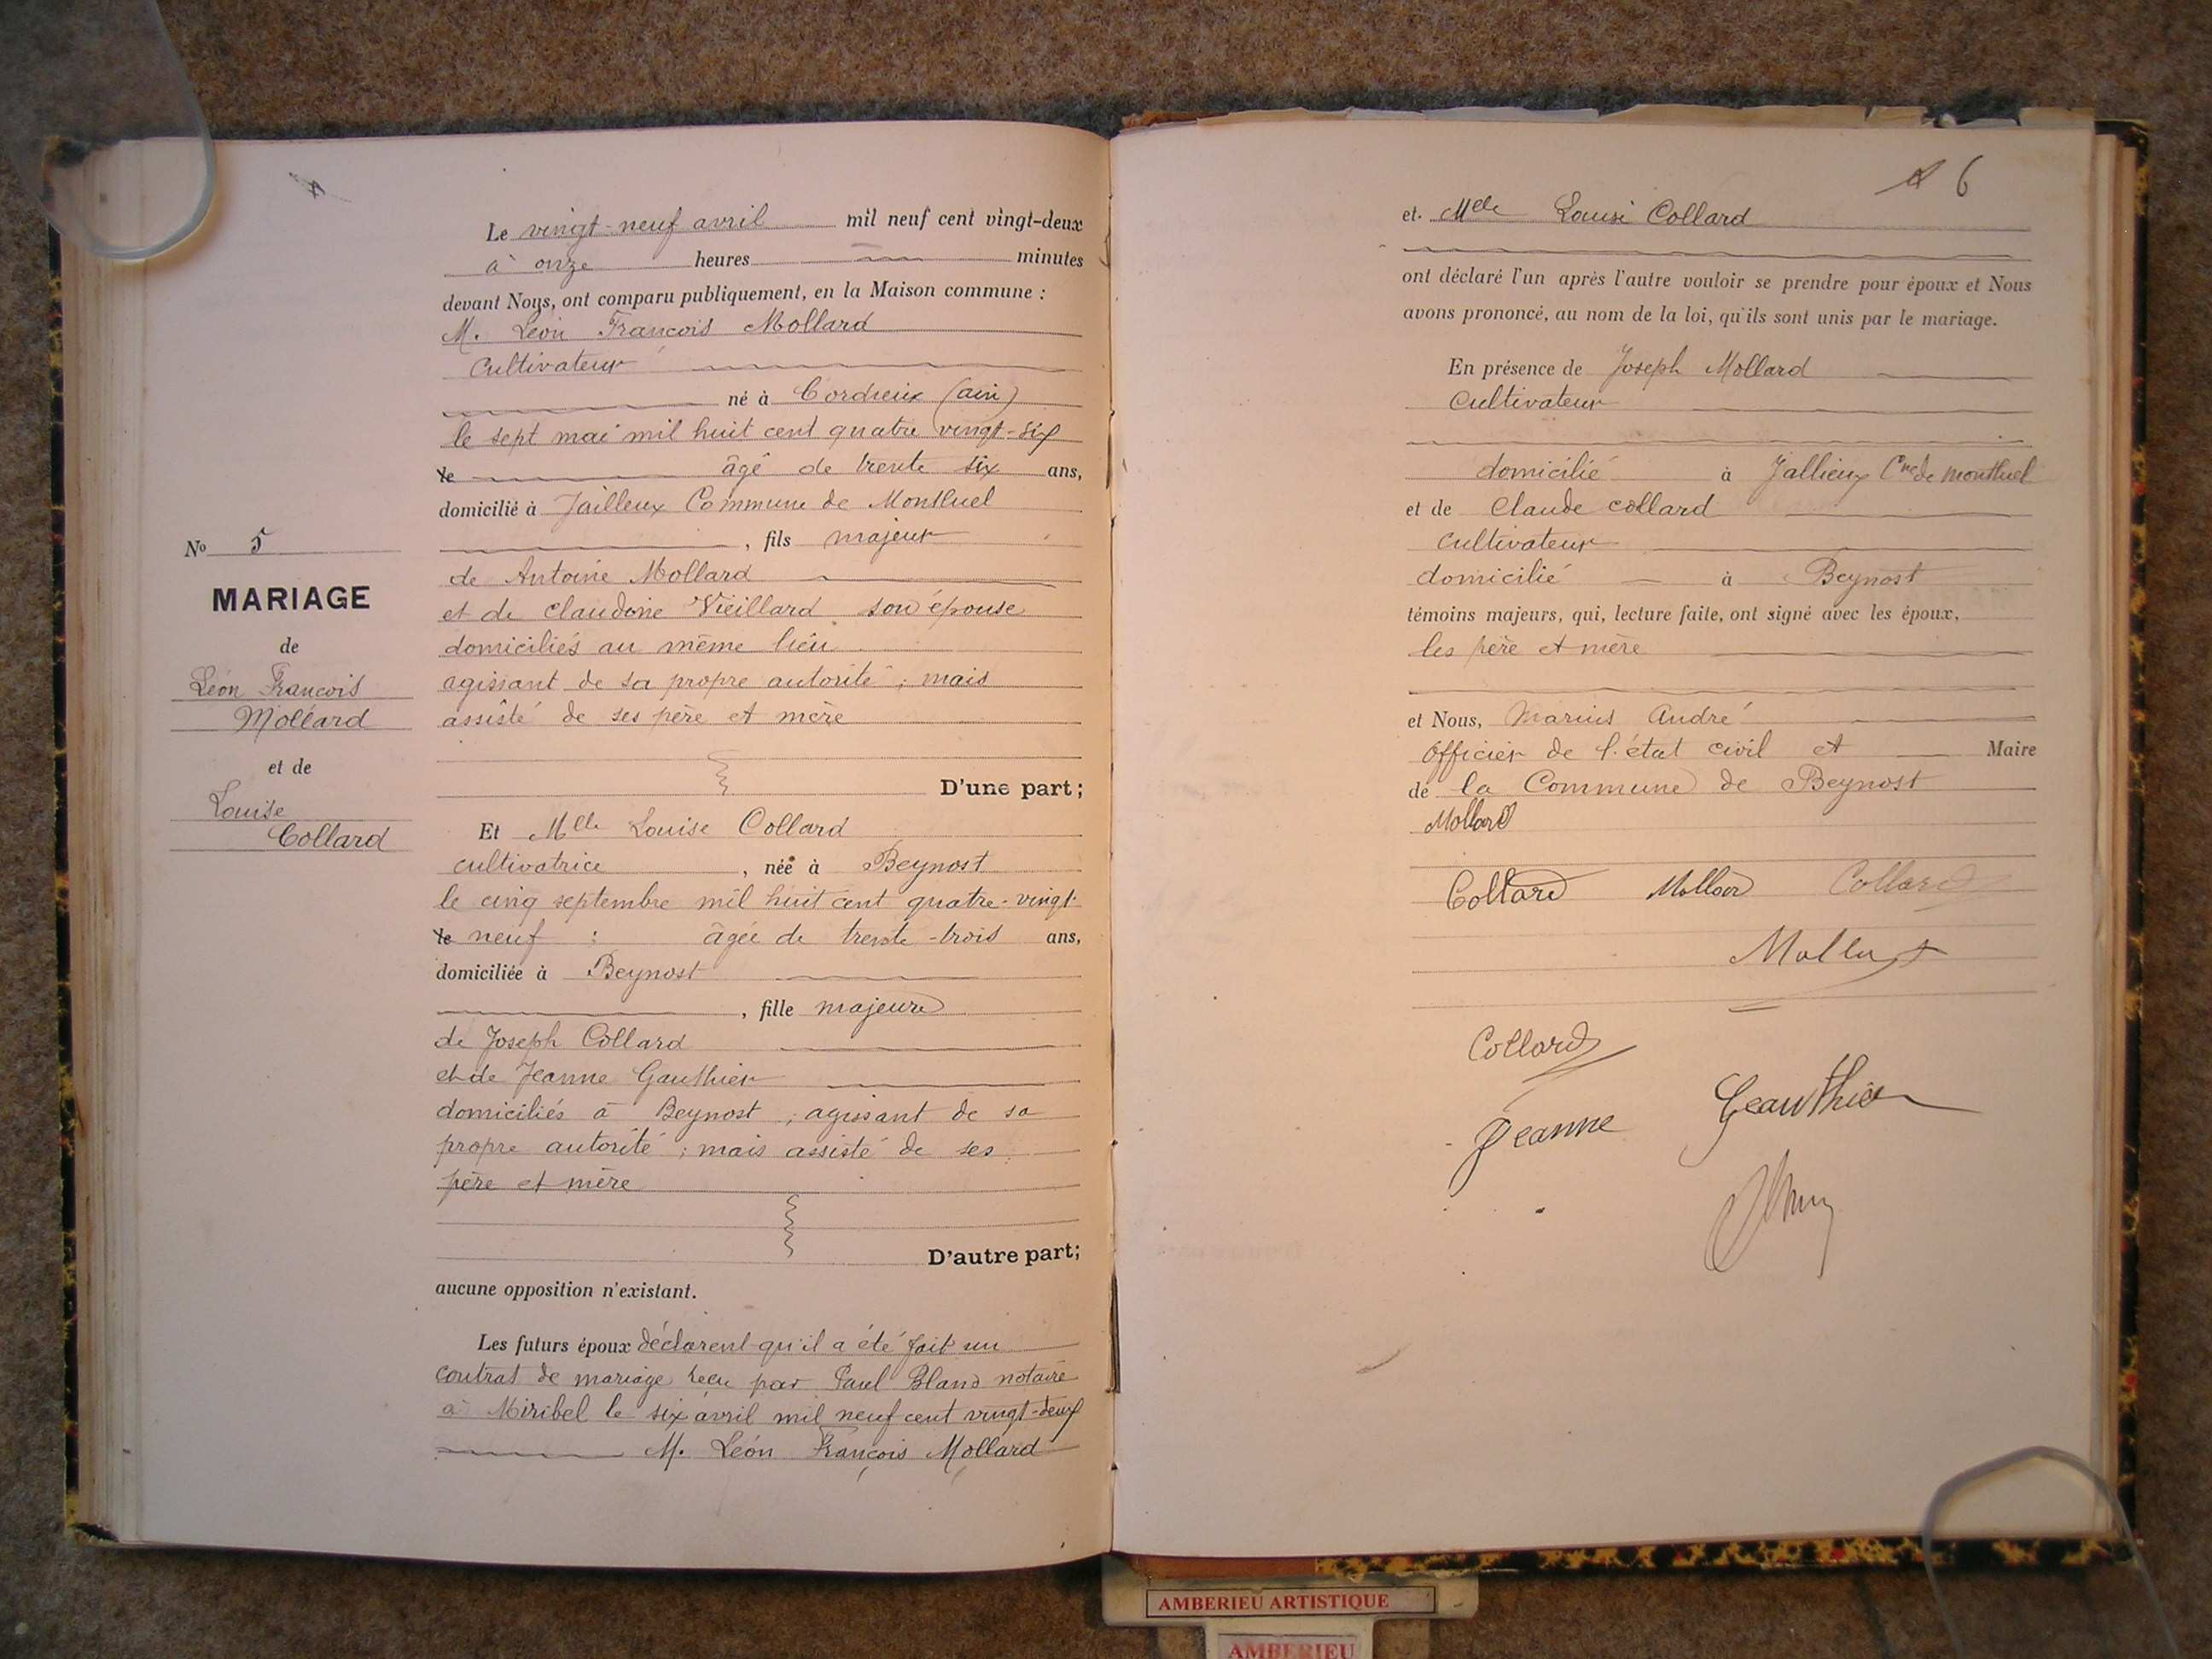 Le vingt-neuf avril mil neuf cent vingt-deux
à onze heures minutes
devant Nous, ont comparu publiquement, en la Maison commune :
M. Léon François Mollard
Cultivateur
né à Cordieux (ain)
le sept mai mil huit cent quatre vingt-six
le âgé de trente six ans,
domicilié à Jailleux Commune de Montluel
, fils majeur
de Antoine Mollard
et de claudine Vieillard son épouse
domiciliés au même lieu
agissant de sa propre autorité ; mais
assisté de ses père et mère
D'une part ;
No 5
MARIAGE
de
Léon François
Mollard
et de
Louise
Collard
Et Mlle Louise Collard
cultivatrice , née à Beynost
le cinq septembre mil huit cent quatre-vingt-
le neuf : âgée de trente-trois ans,
domiciliée à Beynost
, fille majeure
de Joseph Collard
et de Jeanne Gauthier
domiciliés à Beynost ; agissant de sa
propre autorité ; mais assisté de ses
père et mère
D'autre part ;
aucune opposition n'existant.
Les futurs époux déclarent qu'il a été fait un
contrat de mariage reçu par Paul Bland notaire
à Miribel le six avril mil neuf cent vingt-deux
M. Léon François Mollard
6
et. Melle Louise Collard
ont déclaré l'un après l'autre vouloir se prendre pour époux et Nous
avons prononcé, au nom de la loi, qu'ils sont unis par le mariage.
En présence de Joseph Mollard
Cultivateur
domicilié à Jallieux Cne de Montluel
et de Claude collard
cultivateur
domicilié à Beynost
témoins majeurs, qui, lecture faite, ont signé avec les époux,
les père et mère
et Nous, Marius André
Officier de l'état civil et Maire
de la Commune de Beynost
Mollard
Collard Mollard Collard
Mollard
Collard
Jeanne Geauthier
AMBERIEU ARTISTIQUE
AMBERIEU